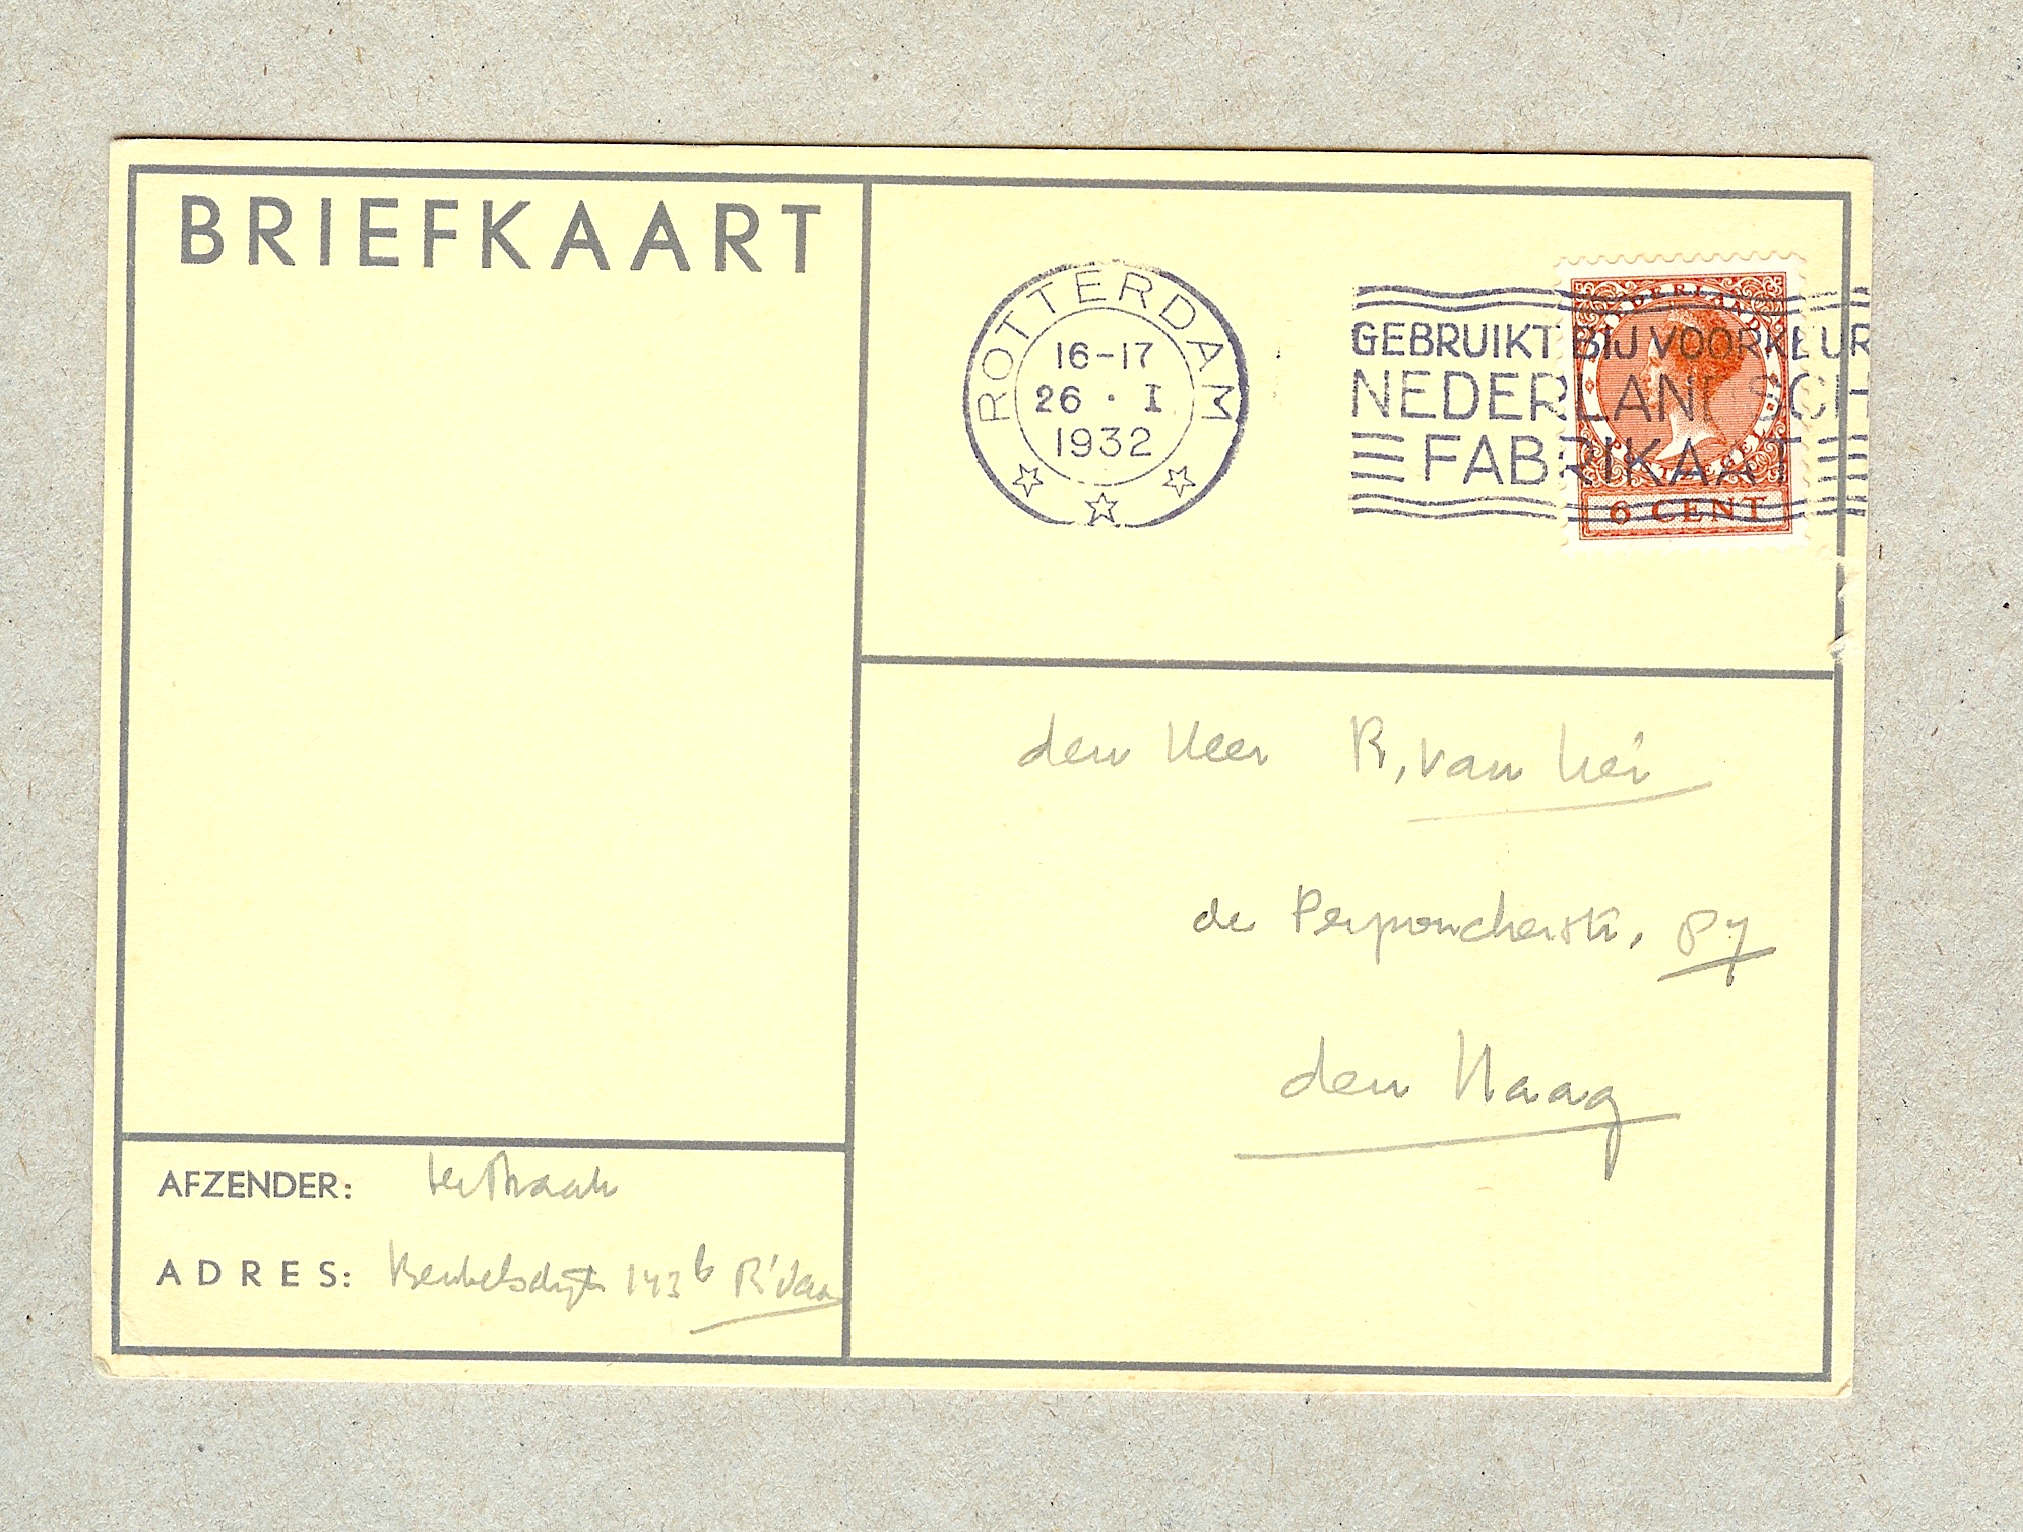 BRIEFKAART
ROTTERDAM
16-17
26 · I
1932
GEBRUIKT BIJ VOORKEUR
NEDERLANDSCH
FABRIKAAT
NEDERLAND
POSTZEGEL
6 CENT
den Heer R. van Lier
de Perponcherstr. 87
den Haag
AFZENDER: ter Braak
ADRES: Beukelsdijk 143b R'dam